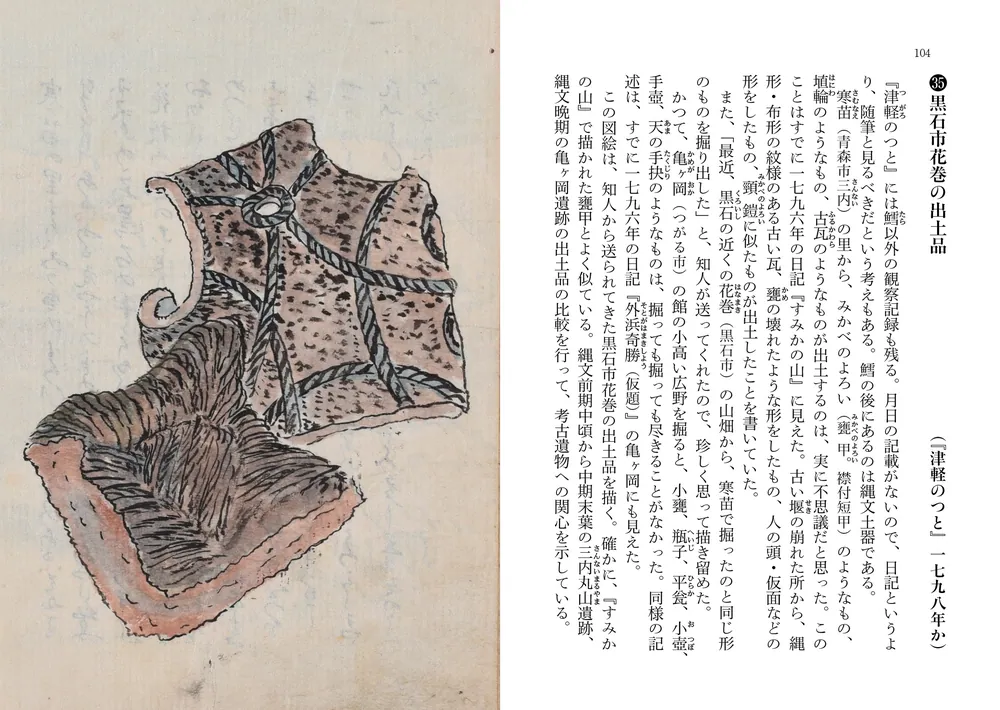 104
㉟黒石市花巻の出土品
(『津軽のつと』一七九八年か)
『津軽のつと』には鱈以外の観察記録も残る。月日の記載がないので、日記というよ
り、随筆と見るべきだという考えもある。鱈の後にあるのは縄文土器である。
寒苗(青森市三内)の里から、みかべのよろい(甕甲。襟付短甲)のようなもの、
埴輪のようなもの、古瓦のようなものが出土するのは、実に不思議だと思った。この
ことはすでに一七九六年の日記『すみかの山』に見えた。古い堰の崩れた所から、縄
形・布形の紋様のある古い瓦、甕の壊れたような形をしたもの、人の頭・仮面などの
形をしたもの、頸鎧に似たものが出土したことを書いていた。
また、「最近、黒石の近くの花巻(黒石市)の山畑から、寒苗で掘ったのと同じ形
のものを掘り出した」と、知人が送ってくれたので、珍しく思って描き留めた。
かつて、亀ヶ岡(つがる市)の館の小高い広野を掘ると、小甕、瓶子、平瓮、小壺、
手壺、天の手抉のようなものは、掘っても掘っても尽きることがなかった。同様の記
述は、すでに一七九六年の日記『外浜奇勝(仮題)』の亀ヶ岡にも見えた。
この図絵は、知人から送られてきた黒石市花巻の出土品を描く。確かに、『すみか
の山』で描かれた甕甲とよく似ている。縄文前期中頃から中期末葉の三内丸山遺跡、
縄文晩期の亀ヶ岡遺跡の出土品の比較を行って、考古遺物への関心を示している。